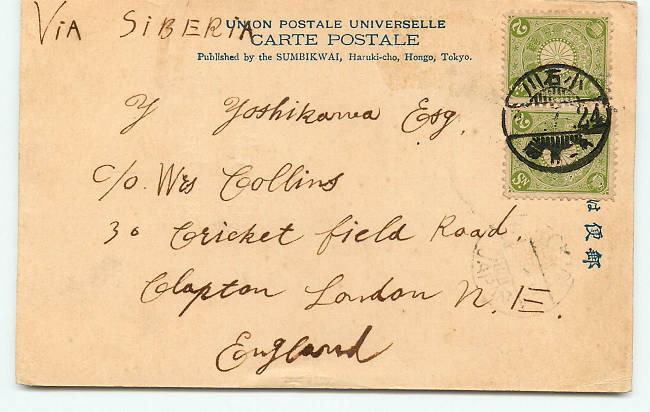 VIA SIBERIA
UNION POSTALE UNIVERSELLE
CARTE POSTALE
Published by the SUMBIKWAI, Haruki-cho, Hongo, Tokyo.
Y Yoshikawa Esq.
c/o. Mrs Collins
30 Cricket field Road.
Clapton London N. E.
England
小石川
郵便